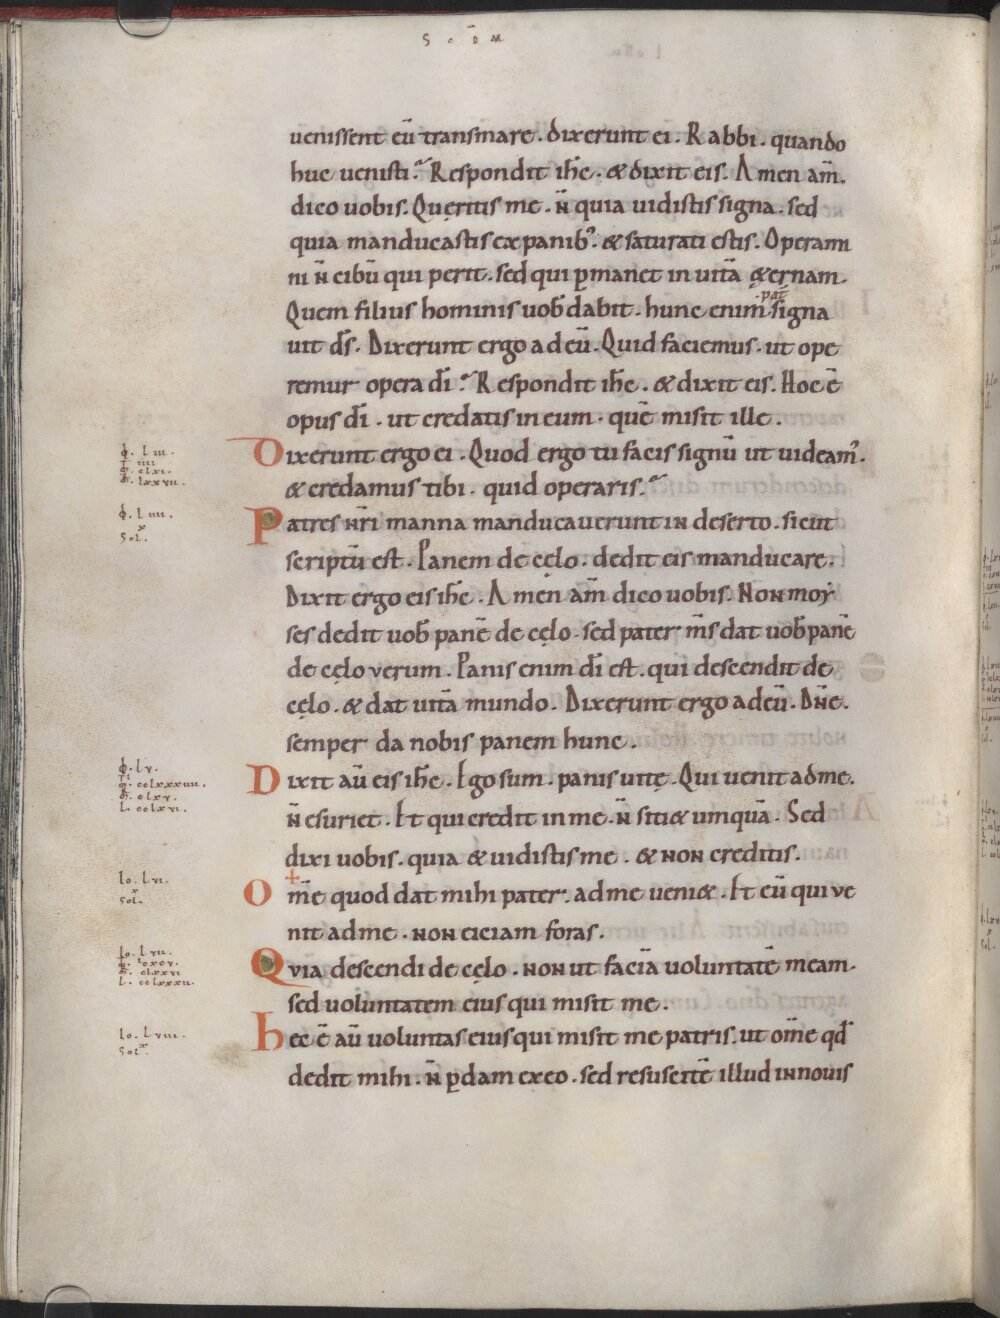 S c D M
uenissent eū transmare. dixerunt ei. Rabbi. quando
huc uenisti? Respondit ihc̄. & dixit eis. Amen am̄.
dico uobis. Queritis me. n̄ quia uidistis signa. sed
quia manducastis ex panib; & saturati estis. Operami
ni n̄ cibū qui perit. sed qui ꝑmanet in uitā &ernam.
pat̄
Quem filius hominis uob̄ dabit. hunc enim signa
uit ds̄. Dixerunt ergo ad eū. Quid faciemus. ut ope
remur opera dī? Respondit ihc̄. & dixit eis. Hoc ē
opus dī. ut credatis in eum. quē misit ille.
Dixerunt ergo ei. Quod ergo tu facis signū ut uideam᷒.
& credamus tibi. quid operaris?
Patres nr̄i manna manducauerunt in deserto. sicut
scriptū est. Panem de cęlo. dedit eis manducare.
Dixit ergo eis ihc̄. Amen am̄ dico uobis. Non moẏ
ses dedit uob̄ panē de cęlo. sed pater ms̄ dat uob̄ panē
de cęlo verum. Panis enim dī est. qui descendit de
cęlo. & dat uitā mundo. Dixerunt ergo ad eū. Dn̄e.
semper da nobis panem hunc.
Dixit aū eis ihc̄. Ego sum. panis uitę. Qui uenit ad me.
n̄ esuriet. Et qui credit in me. n̄ siti& umquā. Sed
dixi uobis. quia & uidistis me. & non creditis.
Om̄e quod dat mihi pater. ad me ueni&. Et eū qui ve
nit ad me. non eiciam foras.
Qvia descendi de cęlo. non ut faciā uoluntatē meam.
sed uoluntatem eius qui misit me.
hec ē aū uoluntas eius qui misit me patris. ut om̄e qd̄
dedit mihi. n̄ ꝑdam ex eo. sed resuscitē illud in nouis
lo. lvi.
x
Sol.
lo. lvii.
l. cclxxxii.
lo. lviii.
x
Sol.